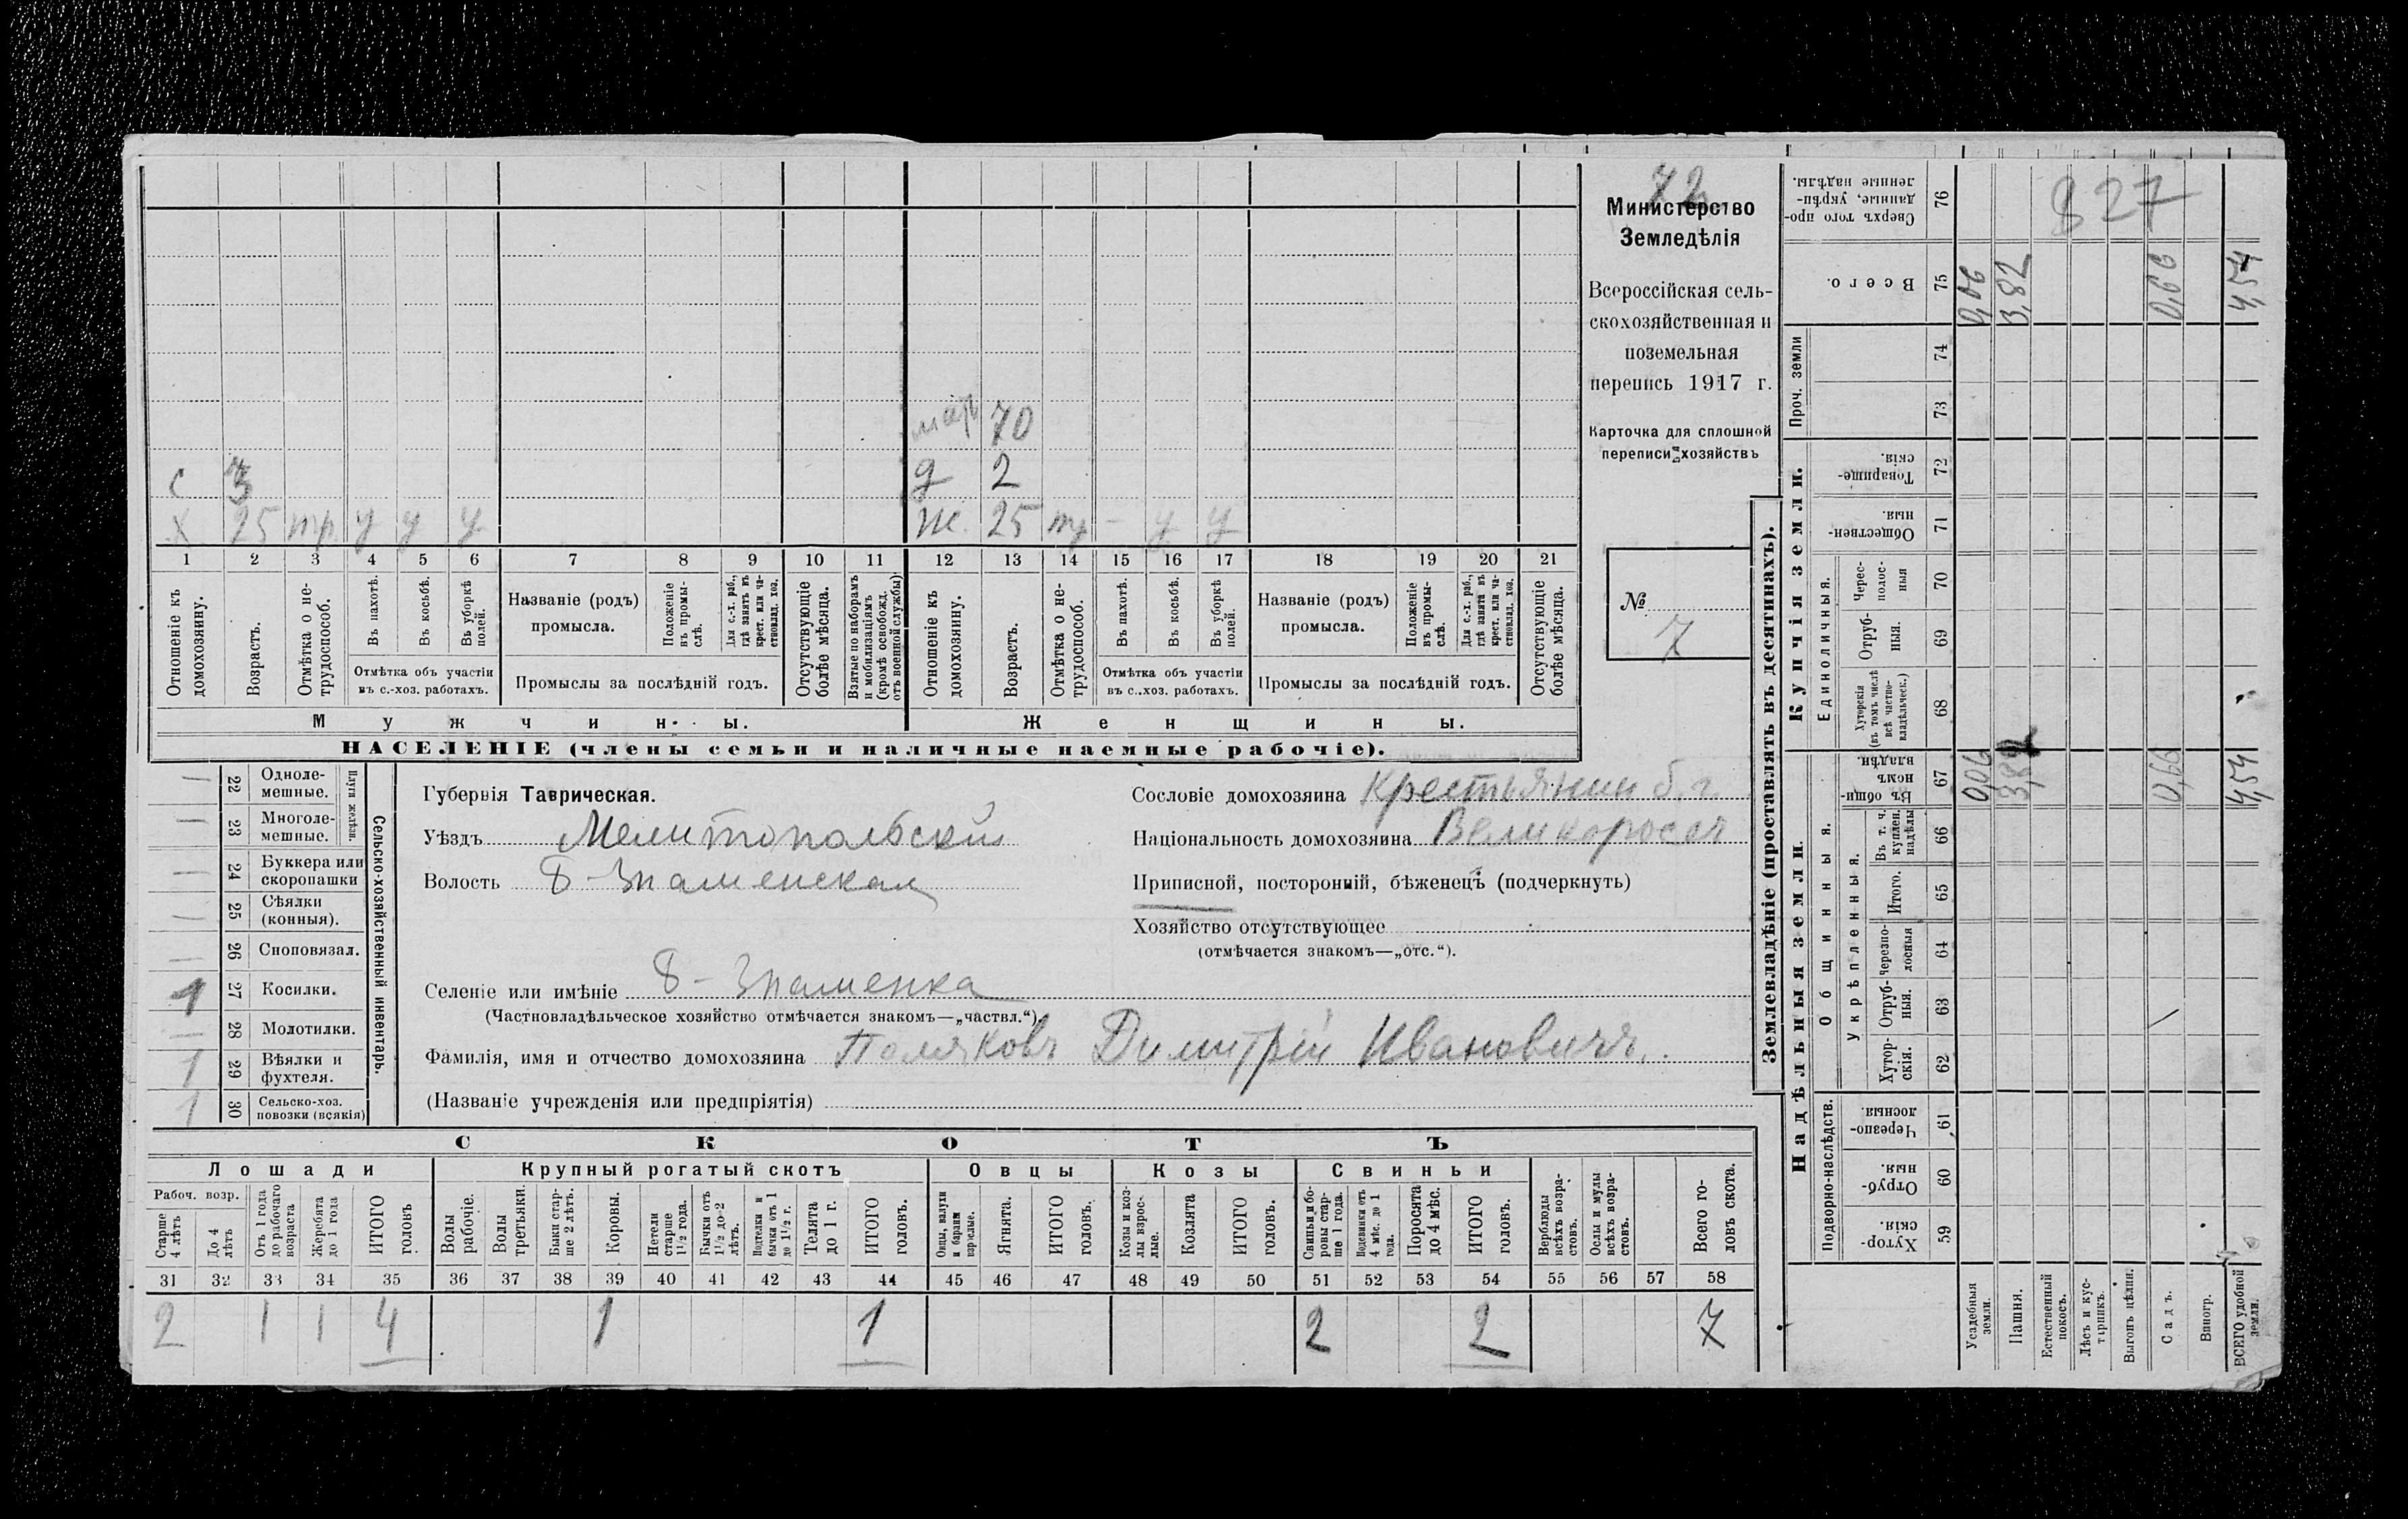 72
827
Министерство
Земледѣлія
Всероссійская сель-
скохозяйственная и
поземельная
перепись 1917 г.
Карточка для сплошной
переписи хозяйствъ
№
7
мар 70
с 3 д 2
х 25 тр у у у ж. 25 тр - у у
1 2 3 4 5 6 7 8 9 10 11 12 13 14 15 16 17 18 19 20 21
Отношеніе къ домохозяину.
Возрастъ.
Отмѣтка о не-трудоспособ.
Въ пахотѣ.
Въ косьбѣ.
Въ уборкѣ полей.
Отмѣтка объ участіи
въ с.-хоз. работахъ.
Названіе (родъ)
промысла.
Положеніе въ промы-слѣ.
Для с.-х. раб., гдѣ занятъ въ крест. или ча-стновлад. хоз.
Промыслы за послѣдній годъ.
Отсутствующіе болѣе мѣсяца.
Взятые по наборамъ и мобилизаціямъ (кромѣ освобожд. отъ военной службы)
Отношеніе къ домохозяину.
Возрастъ.
Отмѣтка о не-трудоспособ.
Въ пахотѣ.
Въ косьбѣ.
Въ уборкѣ полей.
Отмѣтка объ участіи
въ с.-хоз. работахъ.
Названіе (родъ)
промысла.
Положеніе въ промы-слѣ.
Для с.-х. раб., гдѣ занята въ крест. или ча-стновлад. хоз.
Промыслы за послѣдній годъ.
Отсутствующіе болѣе мѣсяца.
Мужчины.
Женщины.
НАСЕЛЕНІЕ (члены семьи и наличные наемные рабочіе).
Сельско-хозяйственный инвентарь.
Плуги желѣзн.
— 22 Одноле-мешные.
— 23 Многоле-мешные.
— 24 Буккера или скоропашки
— 25 Сѣялки (конныя).
— 26 Сноповязал.
1 27 Косилки.
— 28 Молотилки.
1 29 Вѣялки и фухтеля.
1 30 Сельско-хоз. повозки (всякія)
Губернія Таврическая.
Уѣздъ Мелитопольскій
Волость Б-Знаменская
Селеніе или имѣніе Б-Знаменка
(Частновладѣльческое хозяйство отмѣчается знакомъ—„частвл.“).
Фамилія, имя и отчество домохозяина Поляковъ Димитрій Ивановичъ.
(Названіе учрежденія или предпріятія)
Сословіе домохозяина Крестьянин б. г.
Національность домохозяина Великороссъ
Приписной, посторонній, бѣженецъ (подчеркнуть)
Хозяйство отсутствующее
(отмѣчается знакомъ—„отс.“).
СКОТЪ
Лошади
Крупный рогатый скотъ
Овцы
Козы
Свиньи
Рабоч. возр.
Старше 4 лѣтъ
До 4 лѣтъ
Отъ 1 года до рабочаго возраста
Жеребята до 1 года
ИТОГО головъ
Волы рабочіе.
Волы третьяки.
Быки стар-ше 2 лѣтъ.
Коровы.
Нетели старше 1½ года.
Бычки отъ 1½ до 2 лѣтъ.
Подтелки и бычки отъ 1 до 1½ г.
Телята до 1 г.
ИТОГО головъ.
Овцы, валухи и бараны взрослые.
Ягнята.
ИТОГО головъ.
Козы и коз-лы взрос-лые.
Козлята
ИТОГО головъ.
Свиньи и бо-ровы стар-ше 1 года.
Подсвинки отъ 4 мѣс. до 1 года.
Поросята до 4 мѣс.
ИТОГО головъ.
Верблюды всѣхъ возра-стовъ.
Ослы и мулы всѣхъ возра-стовъ.
Всего го-ловъ скота.
31 32 33 34 35 36 37 38 39 40 41 42 43 44 45 46 47 48 49 50 51 52 53 54 55 56 57 58
2 1 1 4 1 1 2 2 7
Землевладѣніе (проставлять въ десятинахъ).
Сверхъ того про-данные, укрѣп-ленные надѣлы. 76
Всего. 75 0,06 3,82 0,66 4,54
Проч. земли
74
73
Купчія земли.
Товарище-скія. 72
Обществен-ныя. 71
Единоличныя.
Черес-полос-ныя 70
Отруб-ныя. 69
Хуторскія (въ томъ числѣ всѣ частно-владѣльческ.) 68
Надѣльныя земли.
Общинныя.
Въ общи-нномъ владѣн. 67 0,06 3,82 0,66 4,54
Укрѣпленныя.
Въ т. ч. куплен. надѣлы 66
Итого. 65
Черезпо-лосныя 64
Отруб-ныя. 63
Хутор-скія. 62
Подворно-наслѣдств.
Черезпо-лосныя. 61
Отруб-ныя. 60
Хутор-скія. 59
Усадебныя земли.
Пашня.
Естественный покосъ.
Лѣсъ и кус-тарникъ.
Выгонъ цѣлин.
Садъ.
Виногр.
ВСЕГО удобной земли.